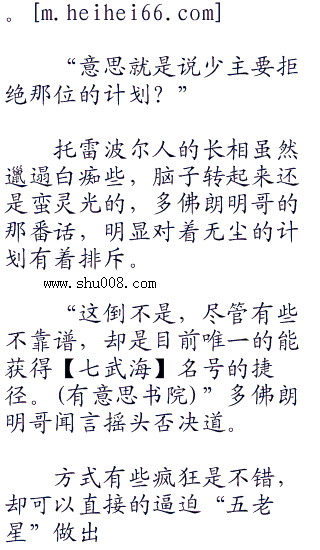 。[m.heihei66.com]
“意思就是说少主要拒
绝那位的计划？”
托雷波尔人的长相虽然
邋遢白痴些，脑子转起来还
是蛮灵光的，多佛朗明哥的
那番话，明显对着无尘的计
划有着排斥。
www.shu008.com
“这倒不是，尽管有些
不靠谱，却是目前唯一的能
获得【七武海】名号的捷
径。(有意思书院)”多佛朗
明哥闻言摇头否决道。
方式有些疯狂是不错，
却可以直接的逼迫“五老
星”做出